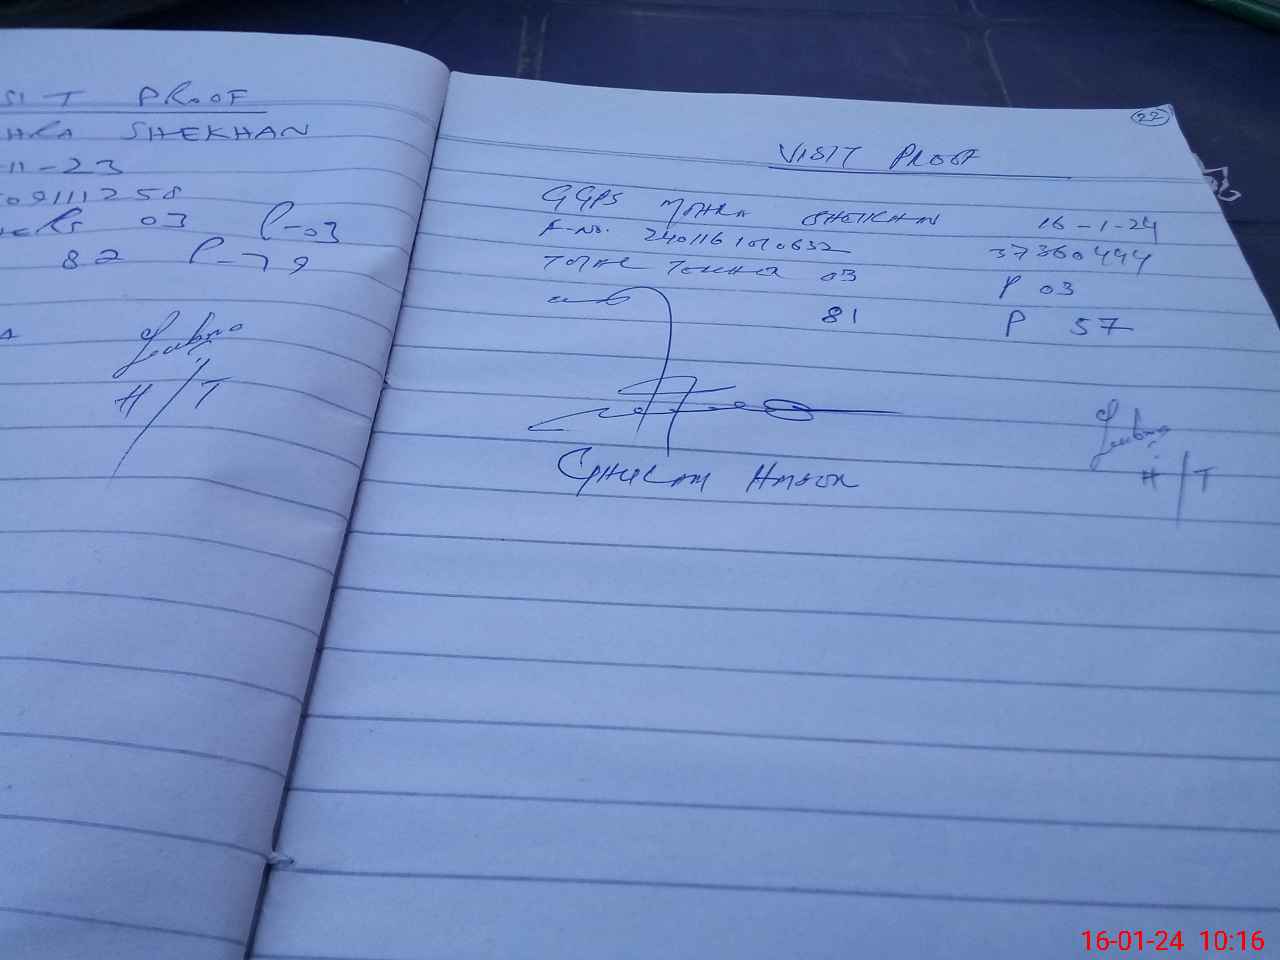 SIT PROOF
HRA SHEKHAN
-11-23
09111258
03 P-03
82 P-79
Lubna
H/T
22
VISIT PROOF
GGPS MOHRA SHEIKHAN 16-1-24
F-No. 2401161010632 37360444
TOTAL TEACHER 03 P 03
81 P 57
GHULAM
Lubna
H/T
16-01-24 10:16